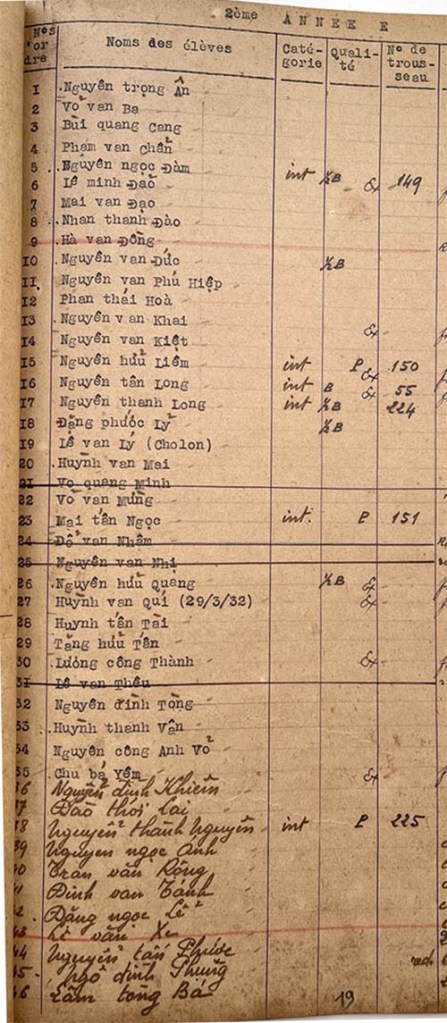 2ème ANNÉE E
Nos d'or dre Noms des élèves Catégorie Qualité No de trousseau
1 Nguyên trọng Ân
2 Võ van Ba
3 Bùi quang Cang
4 Phạm van Chẩn
5 Nguyên ngọc Đàm int ½B 149
6 Lê minh Đảo Ex
7 Mai van Đạo
8 Nhan thanh Đào
9 Hà van Đồng
10 Nguyên van Đức ½B
11 Nguyên van Phú Hiệp
12 Phan thái Hoà
13 Nguyên van Khai Ex
14 Nguyên van Kiệt
15 Nguyên hữu Liêm int P 150
16 Nguyên tân Long int B Ex 55
17 Nguyên thanh Long int ½B Ex 224
18 Đặng phước Lý ½B
19 Lê van Lý (Cholon)
20 Huỳnh van Mai
21 Vo quang Minh
22 Võ van Mừng
23 Mai tân Ngọc int. P 151
24 Đỗ van Nhâm
25 Nguyên van Nhị
26 Nguyên hữu Quang ½B Ex
27 Huỳnh van Quí (29/3/32) Ex
28 Huynh tân Tài
29 Tăng hữu Tân
30 Lương công Thành Ex
31 Lê van Thêu
32 Nguyên đình Tòng
33 Huỳnh thanh Vân
34 Nguyên công Anh Võ
35 Chu bá Yêm Ex
36 Nguyễn đình Khiêm
37 Đào thới Lai
38 Nguyễn thành Nguyên int P 225
39 Nguyen ngọc Anh
40 Tran văn Rông
41 Đinh van Tánh
42 Đặng ngọc Lê
43 Lê văn Xe
44 Nguyễn tấn Phước
45 Ngô đình Thung red
46 Lâm tòng Bá 19